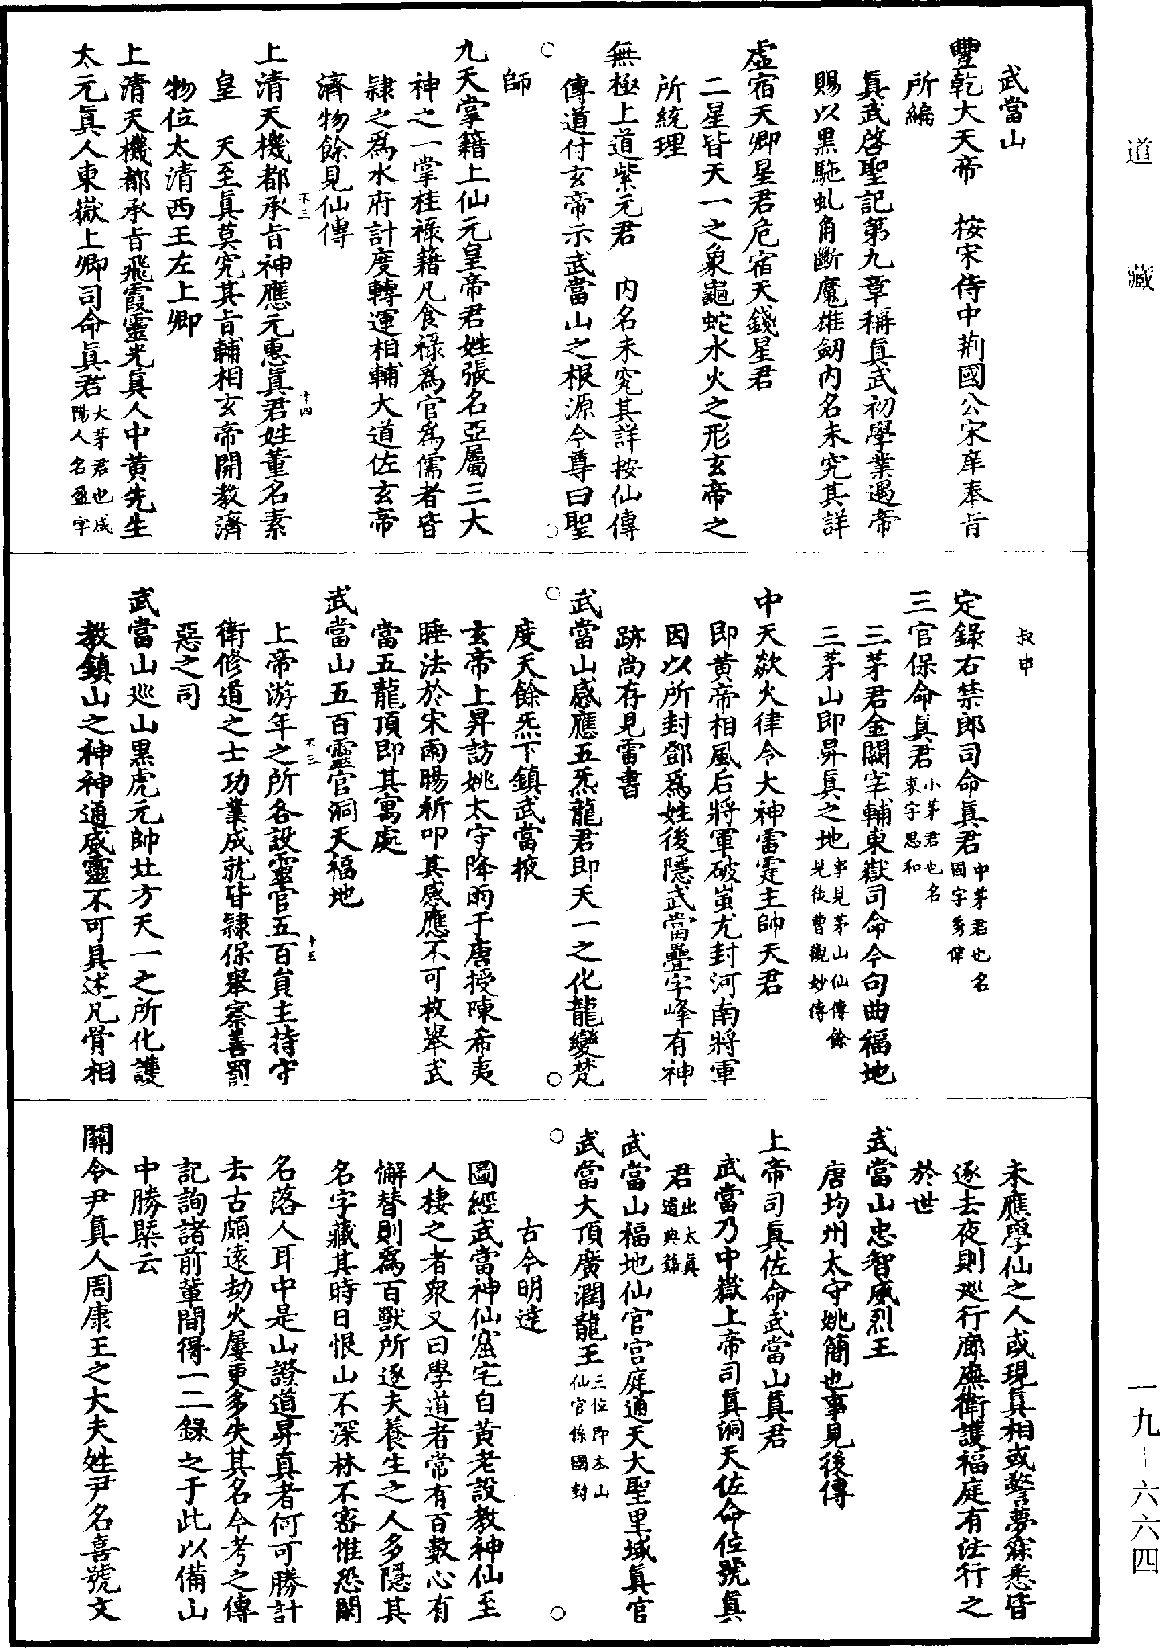 道藏
武當山
豐乾大天帝　按宋侍中荆國公宋庠奉旨
所編
真武啓聖記第九章稱真武初學業遇帝
賜以黑馳虬角斷魔雄劒內名未究其詳
虛宿天卿星君危宿天錢星君
二星皆天一之象龜蛇水火之形玄帝之
所統理
無極上道紫元君　內名未究其詳按仙傳
傳道付玄帝示武當山之根源今尊曰聖
師
九天掌籍上仙元皇帝君姓張名亞屬三大
神之一掌桂禄籍凡食禄爲官爲儒者皆
隸之爲水府計度轉運相輔大道佐玄帝
濟物餘見仙傳
上清天機都承旨神應元惠真君姓董名素
皇　天至真莫究其旨輔相玄帝開教濟
物位太清西王左上卿
上清天機都承旨飛霞靈光真人中黃先生
太元真人東嶽上卿司命真君大茅君也咸陽人名盈字
叔申
定錄右禁郎司命真君中茅君也名固字秀偉
三官保命真君小茅君也名衷字思和
三茅君金闕宰輔東嶽司命今句曲福地
三茅山即昇真之地事見茅山仙傳餘見後曹觀妙傳
中天欻火律令大神雷霆主帥天君
即黃帝相風后將軍破蚩尤封河南將軍
因以所封鄧爲姓後隱武當疊字峰有神
跡尚存見雷書
武當山感應五炁龍君即天一之化龍變梵
度天餘炁下鎮武當掖
玄帝上昇訪姚太守降雨于唐授陳希夷
睡法於宋雨暘祈叩其感應不可枚舉武
當五龍頂即其寓處
武當山五百靈官洞天福地
上帝游年之所各設靈官五百員主持守
衛修道之士功業成就皆隸保舉察善罰
惡之司
武當山巡山黑虎元帥壯方天一之所化護
教鎮山之神神通感靈不可具述凡骨相
未應學仙之人或現真相或警夢寐悉皆
逐去夜則巡行廊廡衛護福庭有法行之
於世
武當山忠智威烈王
唐均州太守姚簡也事見後傳
上帝司真佐命武當山真君
武當乃中嶽上帝司真洞天佐命位號真
君出太真道典錄
武當山福地仙官宫庭通天大聖里域真官
武當大頂廣潤龍王三位即本山仙官係國封
古今明達
圖經武當神仙窟宅自黃老設教神仙至
人棲之者衆又曰學道者常有百數心有
懈替則爲百獸所逐夫養生之人多隱其
名字藏其時日恨山不深林不密惟恐聞
名落人耳中是山證道昇真者何可勝計
去古頗遠劫火屢更多失其名今考之傳
記詢諸前輩間得一二錄之于此以備山
中勝槩云
關令尹真人周康王之大夫姓尹名喜號文
一九-六六四